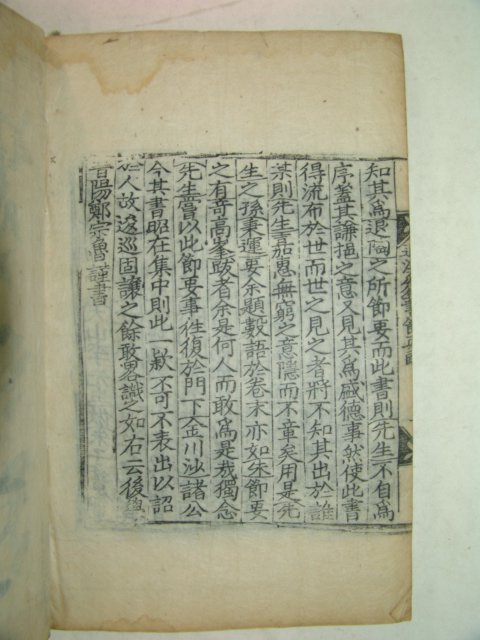 知其爲退陶之所節要而此書則先生不自爲
序盖其謙挹之意又見其爲盛德事然使此書
得流布於世而世之見之者將不知其出於誰
某則先生嘉惠無窮之意隱而不章矣用是先
生之孫秉運要余題數語於卷末亦如朱節要
之有奇高峯跋者余是何人而敢爲是哉獨念
先生嘗以此節要事往復於門下金川沙諸公
今其書昭在集中則此一欵不可不表出以詔
人故逡巡固讓之餘敢畧識之如右云後
晋陽鄭宗魯謹書